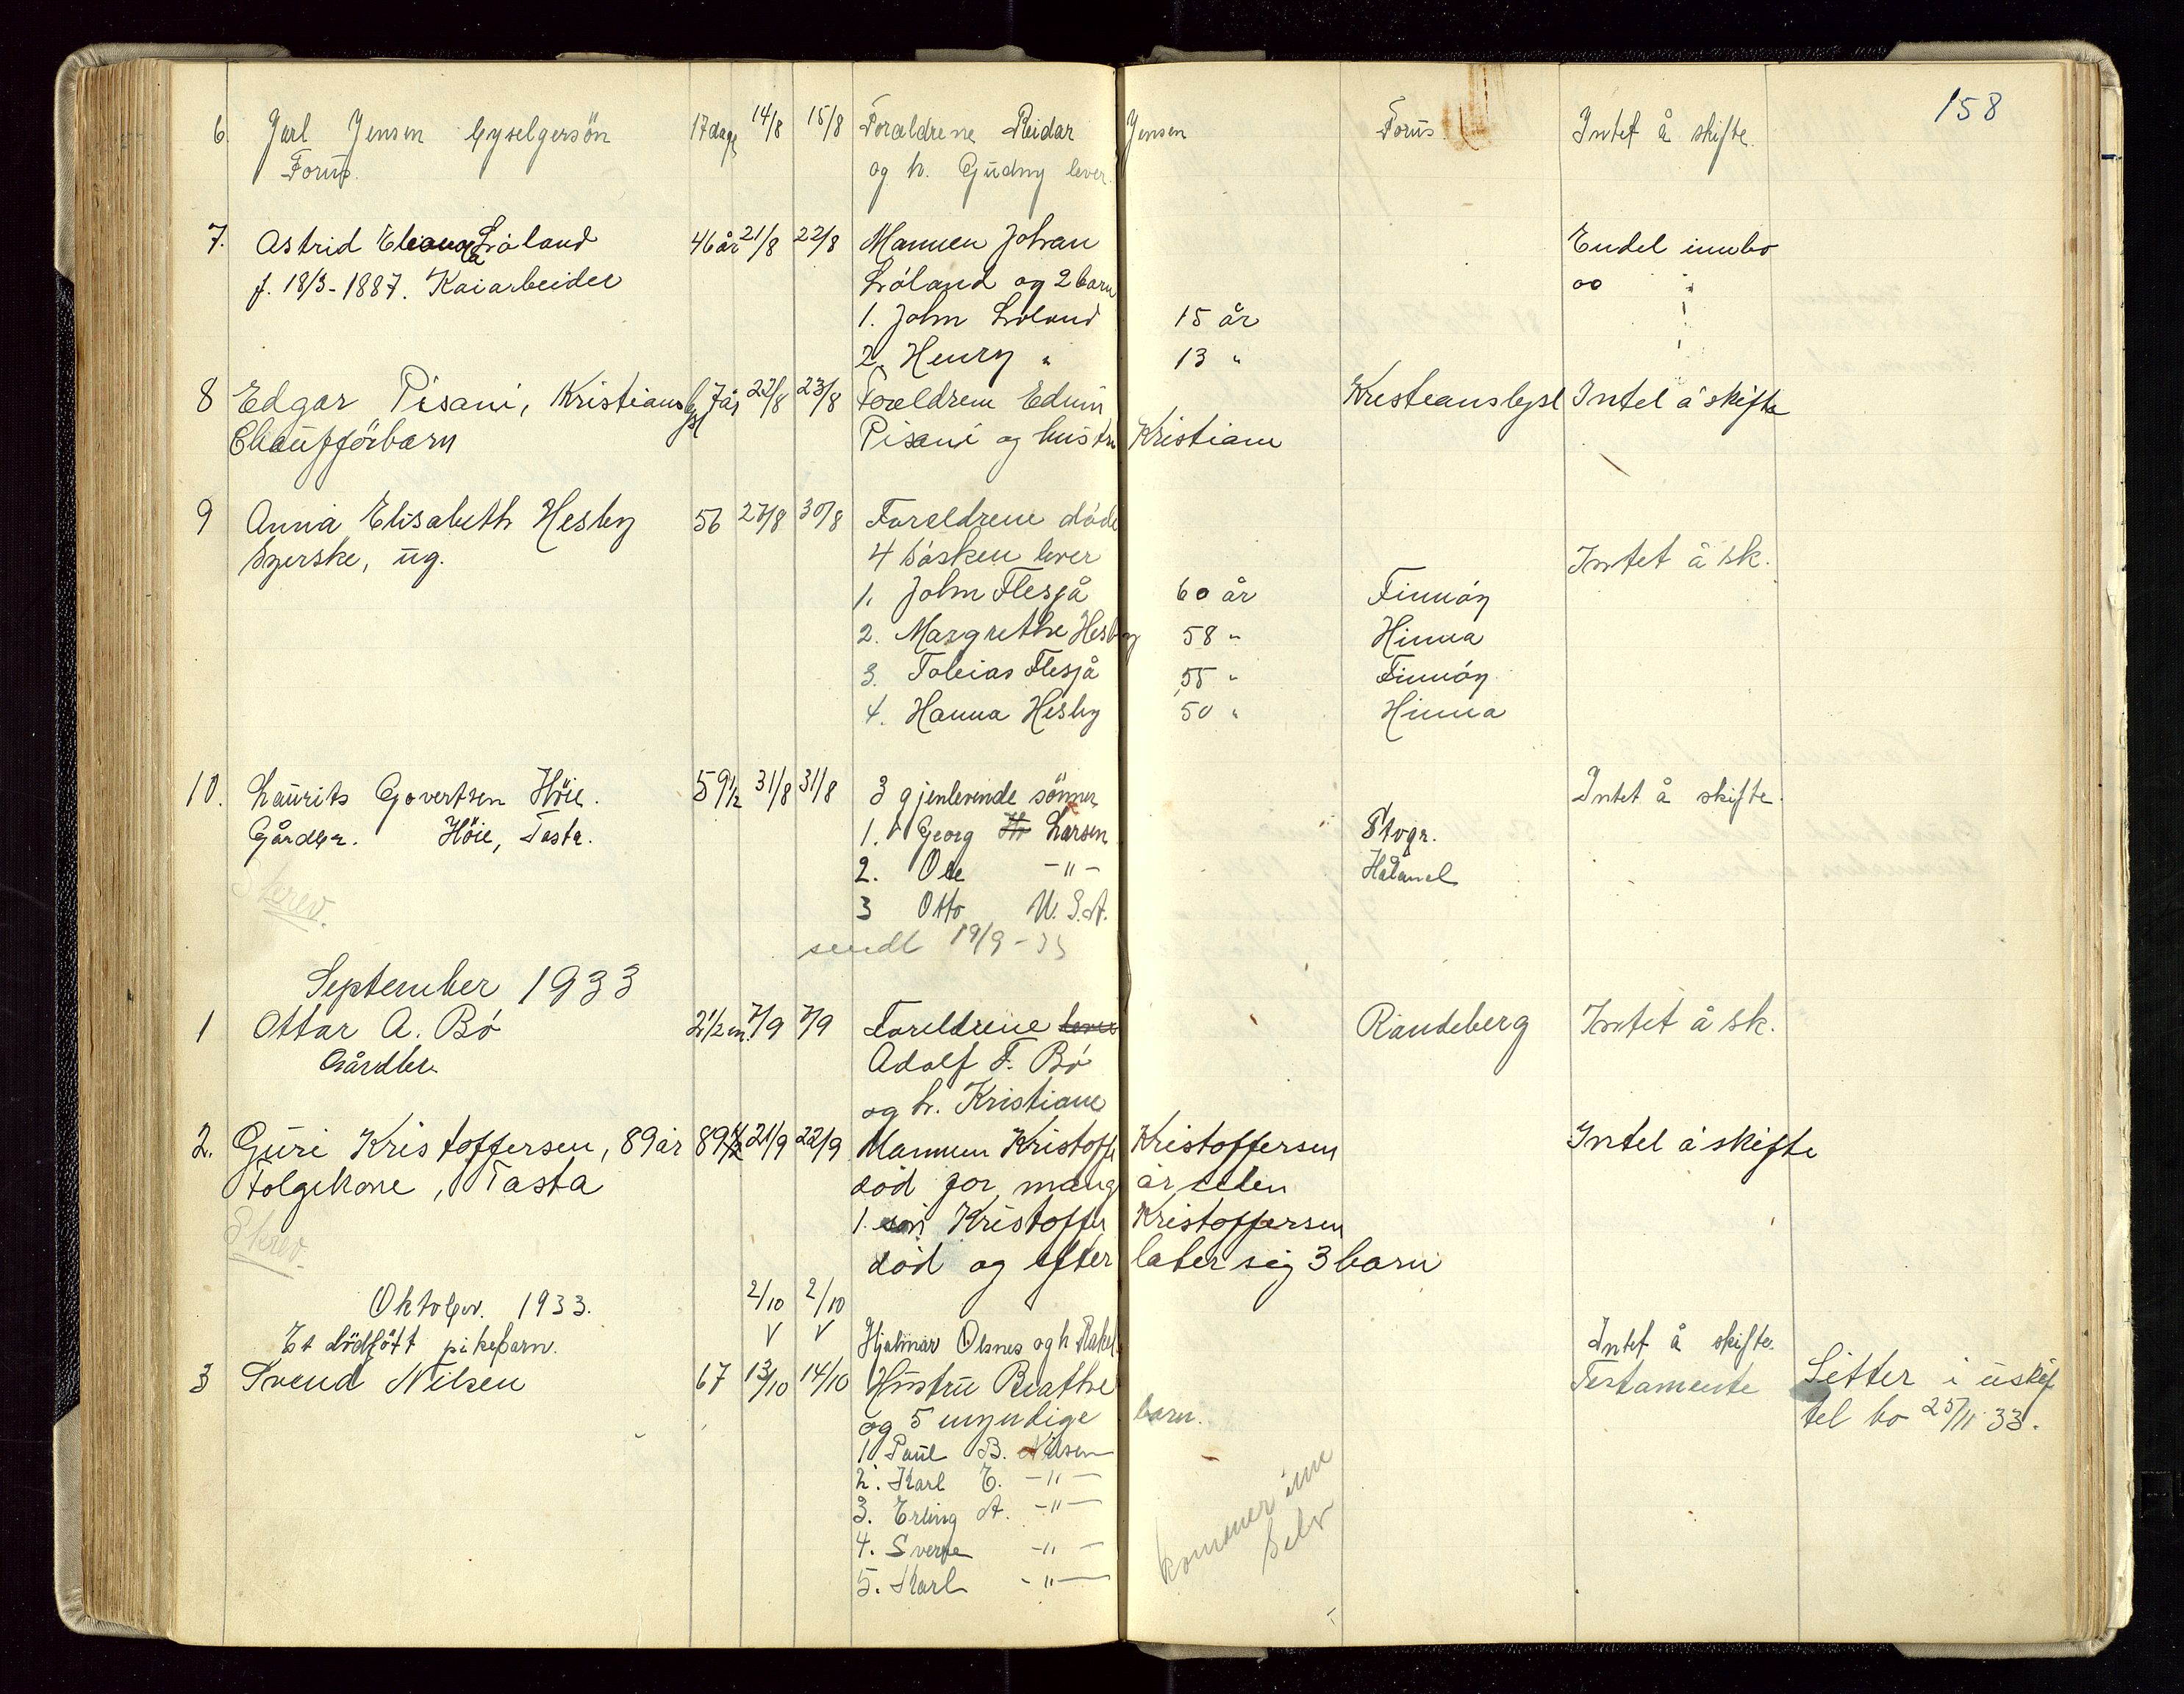 158
6. Jarl Jensen Cyselgersön 17 dage 14/8 15/8 Forældrene Reidar Jensen Forus. Intet å skifte.
Forus. og h. Gudny lever.
7. Astrid Løland 46 år 21/8 22/8 Mannen Johan Endel innbo
f. 18/3-1887. Kaiarbeider Løland og 2 barn
1. John Løland 15 år
2. Henry " 13 "
8 Edgar Pisani, Kristianslyst 7 år 22/8 23/8 Foreldrene Edvin Kristianslyst Intet å skifte
Chaufförbarn Pisani og hustru Kristiane
9 Anna Elisabeth Hesby 56 27/8 30/8 Foreldrene døde
Syerske, ug. 4 søsken lever Intet å sk.
1. John Flesjå 60 år Finnøy
2. Margrethe Hesby 58 " Hinna
3. Tobias Flesjå 55 " Finnøy
4. Hanna Hesby 50 " Hinna
10. Laurits Govertsen Höie. 59 1/2 31/8 31/8 3 gjenlevende sönner Intet å skifte.
Gårdbr. Höie, Tasta. 1. Georg Larsen Stvgr.
2. Ole -"- Håland
Skrev. 3 Otto U.S.A.
sendt 19/9-33
September 1933
1 Ottar A. Bø 2 1/2 m. 7/9 7/9 Foreldrene lever Randeberg Intet å sk.
Gårdbr. Adolf F. Bø
og h. Kristiane
2. Guri Kristoffersen, 89 år 89 1/2 21/9 22/9 Mannen Kristoffer Kristoffersen Intet å skifte
Folgekone, Tasta död for mange år siden
1. sön Kristoffer Kristoffersen
Skrev. död og efterlater sig 3 barn
Oktober. 1933. 2/10 2/10
Et dödfött pikebarn. V V Hjalmar Olsnes og h. Rakel. Intet å skifte.
3 Svend Nilsen 67 13/10 14/10 Hustru Beathe Testamente Sitter i uskif
og 5 umyndige barn. tet bo 25/11 33.
1. Paul B. Nilsen
2. Karl E. -"-
3. Erling A. -"-
4. Sverre -"-
5. Karl -"-
kommer inn
selv